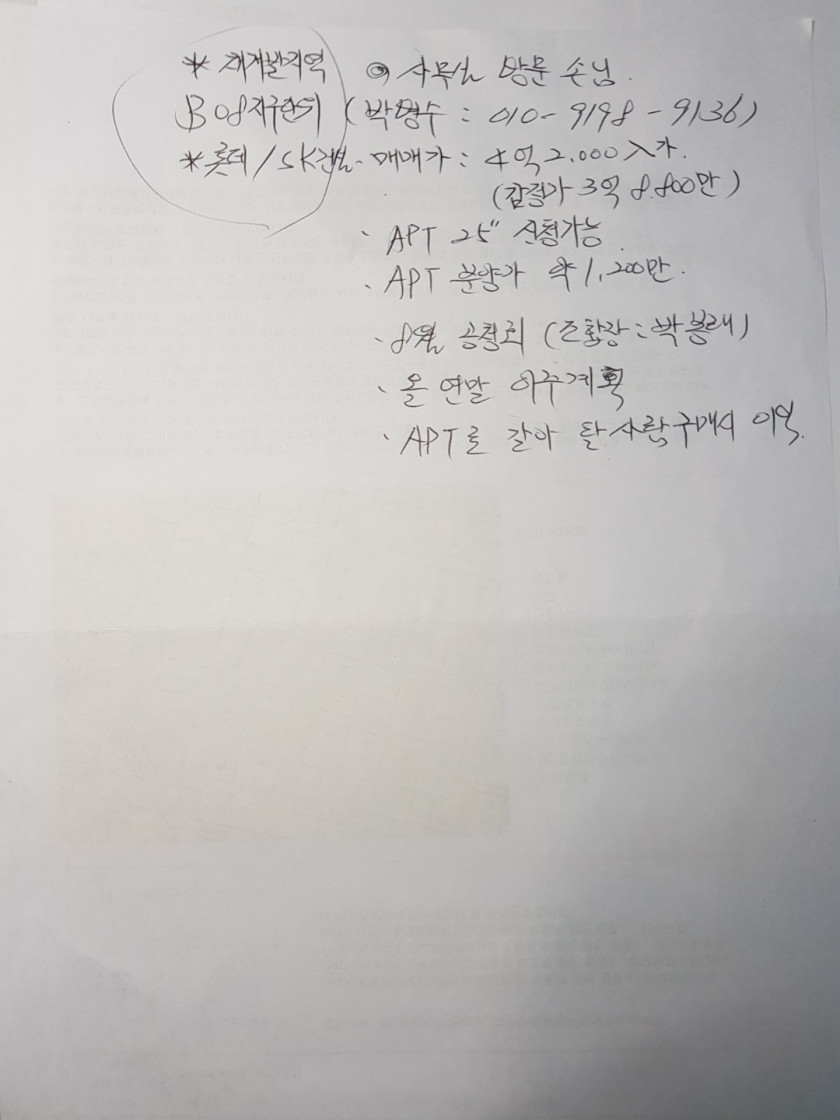 * 재개발지역 ⊙ 사무실 방문 손님.
B08지구 (박명수 : 010-9198-9136)
* 롯데/SK건설· 매매가 : 4억 2.000 入가.
(감정가 3억 8.800만)
· APT 25" 신청가능.
· APT 분양가 약 1,200만.
· 8월 공청회 (조합장 : 박봉래)
· 올 연말 이주계획
· APT로 갈아 탈 사람 구매시 이익.